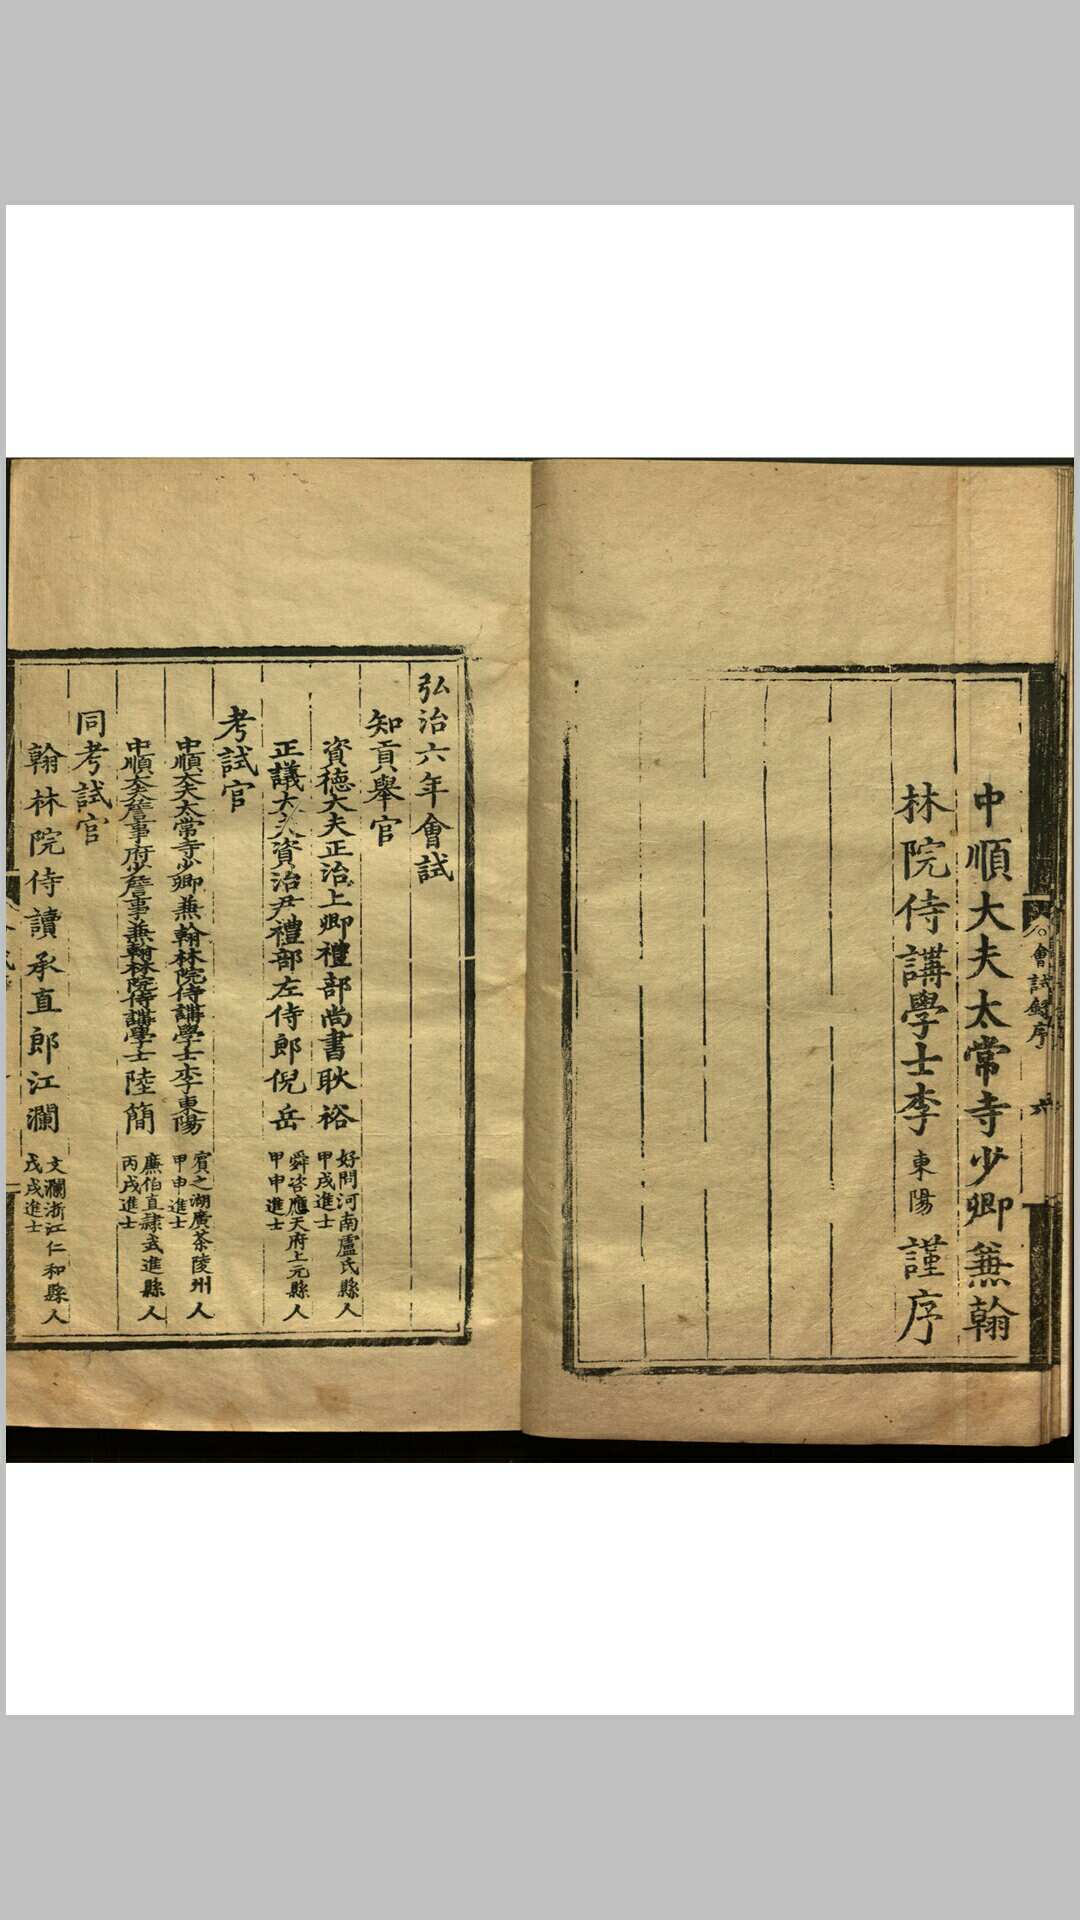 中順大夫太常寺少卿蒹翰
林院侍講學士李東陽謹序
會試録序
六
弘治六年會試
知貢舉官
資德大夫正治上卿禮部尚書耿裕
好問河南盧氏縣人
甲戌進士
正議大夫資治尹禮部左侍郎倪岳
舜咨應天府上元縣人
甲申進士
考試官
中順大夫太常寺少卿兼翰林院侍講學士李東陽
賓之湖廣茶陵州人
甲申進士
中順大夫詹事府少詹事兼翰林院侍講學士陸簡
廉伯直隷武進縣人
丙戌進士
同考試官
翰林院侍讀承直郎江瀾
文瀾浙江仁和縣人
戊戌進士